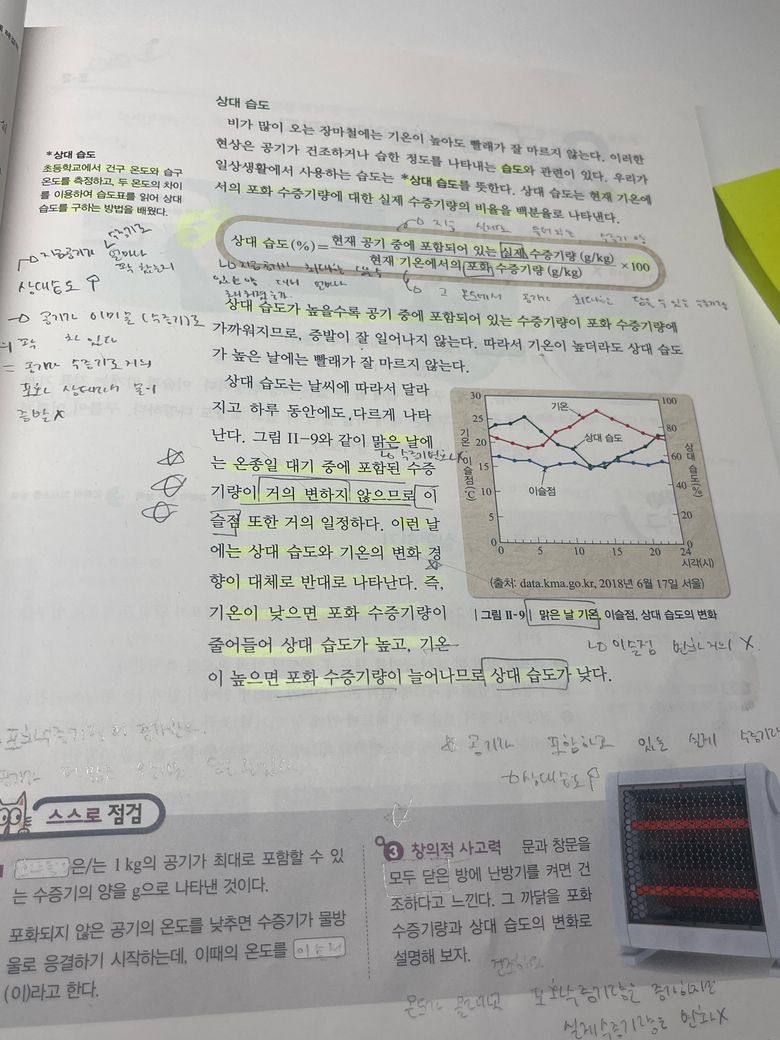 상대 습도
비가 많이 오는 장마철에는 기온이 높아도 빨래가 잘 마르지 않는다. 이러한
현상은 공기가 건조하거나 습한 정도를 나타내는 습도와 관련이 있다. 우리가
일상생활에서 사용하는 습도는 *상대 습도를 뜻한다. 상대 습도는 현재 기온에
서의 포화 수증기량에 대한 실제 수증기량의 비율을 백분율로 나타낸다.
*상대 습도
초등학교에서 건구 온도와 습구
온도를 측정하고, 두 온도의 차이
를 이용하여 습도표를 읽어 상대
습도를 구하는 방법을 배웠다.
상대 습도(%)=현재 공기 중에 포함되어 있는 실제 수증기량(g/kg)
현재 기온에서의 포화 수증기량(g/kg)
×100
상대습도↑
공기가 이미 물(수증기)로
꽉 차 있다
증발X
상대 습도가 높을수록 공기 중에 포함되어 있는 수증기량이 포화 수증기량에
가까워지므로, 증발이 잘 일어나지 않는다. 따라서 기온이 높더라도 상대 습도
가 높은 날에는 빨래가 잘 마르지 않는다.
상대 습도는 날씨에 따라서 달라
지고 하루 동안에도 다르게 나타
난다. 그림 II-9와 같이 맑은 날에
는 온종일 대기 중에 포함된 수증
기량이 거의 변하지 않으므로 이
슬점 또한 거의 일정하다. 이런 날
에는 상대 습도와 기온의 변화 경
향이 대체로 반대로 나타난다. 즉,
기온이 낮으면 포화 수증기량이
줄어들어 상대 습도가 높고, 기온
이 높으면 포화 수증기량이 늘어나므로 상대 습도가 낮다.
30
25
20
15
10
5
0
기온
이슬점
(℃)
기온
상대 습도
이슬점
100
80
60
40
20
0
상대 습도(%)
0 5 10 15 20 24
시각(시)
(출처: data.kma.go.kr, 2018년 6월 17일 서울)
| 그림 II-9 | 맑은 날 기온, 이슬점, 상대 습도의 변화
이슬점 변화 거의 X
공기가 포함하고 있는 실제 수증기량
상대습도↑
스스로 점검
은/는 1 kg의 공기가 최대로 포함할 수 있
는 수증기의 양을 g으로 나타낸 것이다.
포화되지 않은 공기의 온도를 낮추면 수증기가 물방
울로 응결하기 시작하는데, 이때의 온도를 이슬점
(이)라고 한다.
3 창의적 사고력 문과 창문을
모두 닫은 방에 난방기를 켜면 건
조하다고 느낀다. 그 까닭을 포화
수증기량과 상대 습도의 변화로
설명해 보자.
포화수증기량은 증가하지만
실제수증기량은 변화X